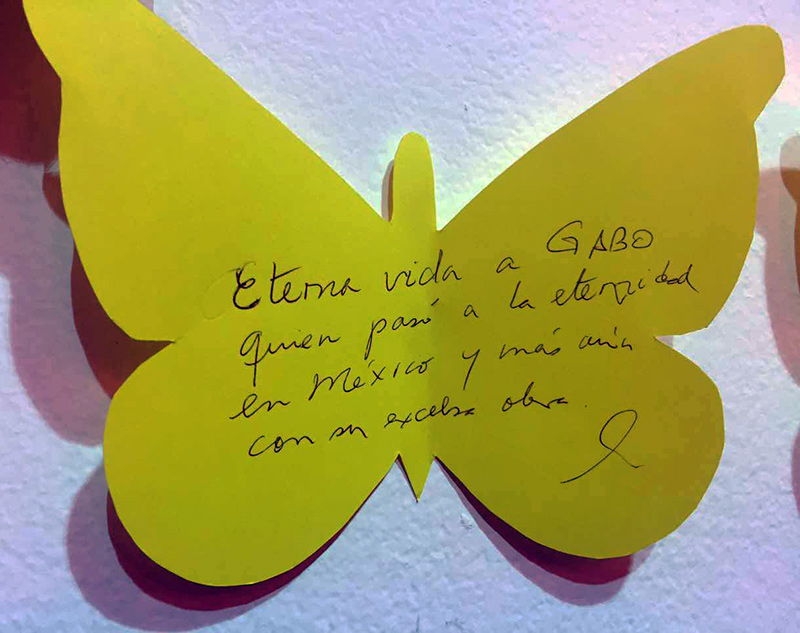 Eterna vida a GABO
quien pasó a la eternidad
en México y más aún
con su excelsa obra.